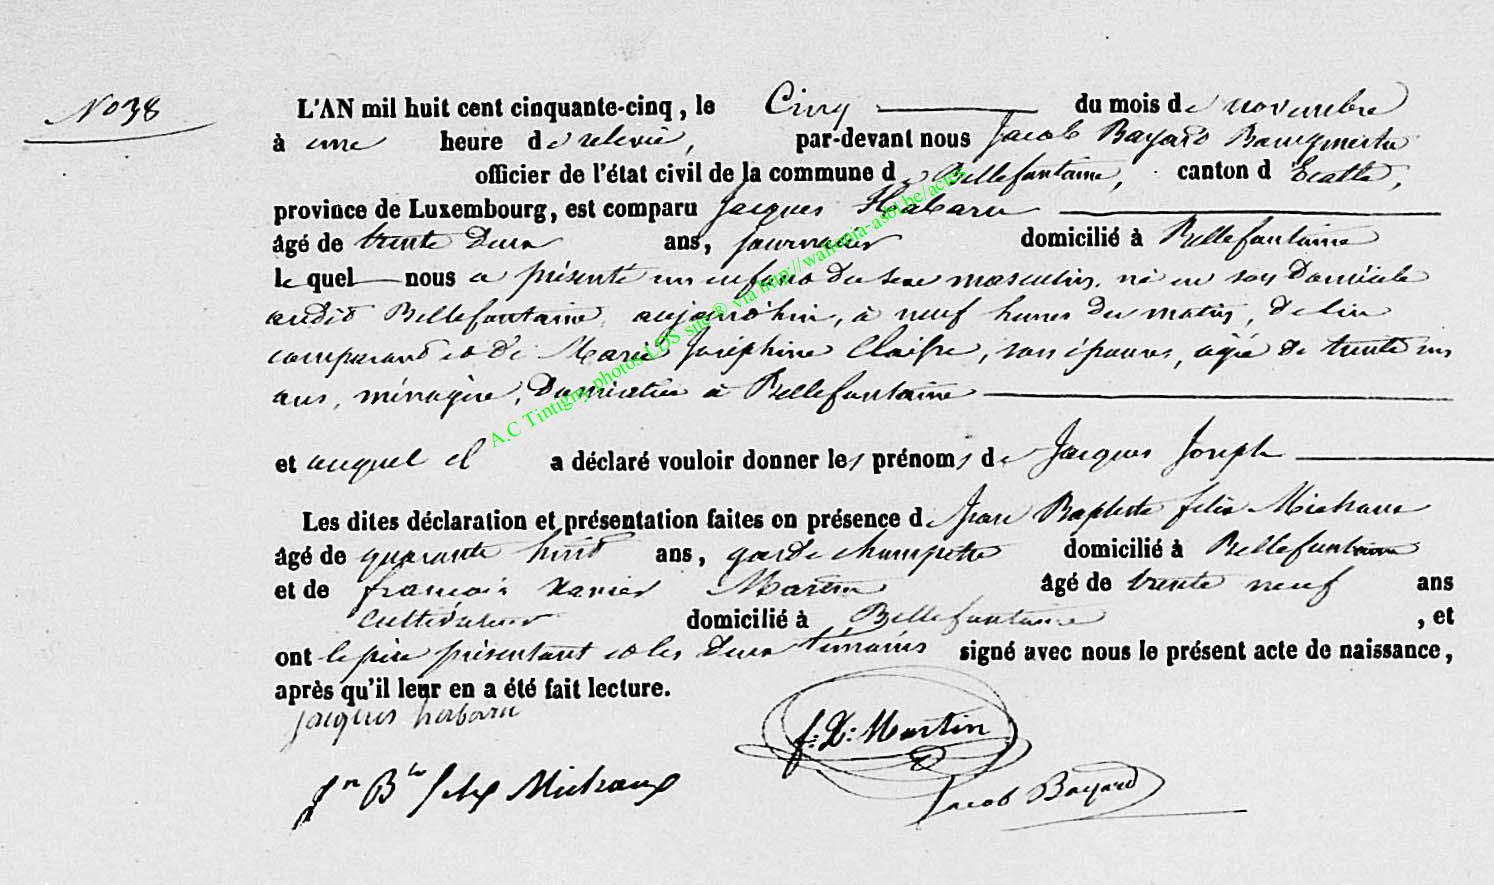 No 38
L'AN mil huit cent cinquante-cinq, le Cinq du mois de novembre
à une heure de relevée, par-devant nous Jacob Bayard Bourgmestre
officier de l'état civil de la commune de Bellefontaine, canton d'Etalle,
province de Luxembourg, est comparu Jacques Habaru
âgé de trente deux ans, journalier domicilié à Bellefontaine
lequel nous a présenté un enfant du sexe masculin, né en son domicile
audit Bellefontaine, aujourd'hui, à neuf heures du matin, de lui
comparant et de Marie Joséphine Claisse, son épouse, agée de trente un
ans, ménagère, domiciliée à Bellefontaine
et auquel il a déclaré vouloir donner les prénoms de Jacques Joseph
Les dites déclaration et présentation faites en présence de Jean Baptiste felix Michaux
âgé de quarante huit ans, garde champetre domicilié à Bellefontaine
et de francois xavier Martin âgé de trente neuf ans
cultivateur domicilié à Bellefontaine, et
ont le père présentant et les deux témoins signé avec nous le présent acte de naissance,
après qu'il leur en a été fait lecture.
jacques habaru
f: X: Martin
Jn Bte felix Michaux
Jacob Bayard
A.C Tintigny photos LDS sur ® via http://wallonia-asbl.be/actes